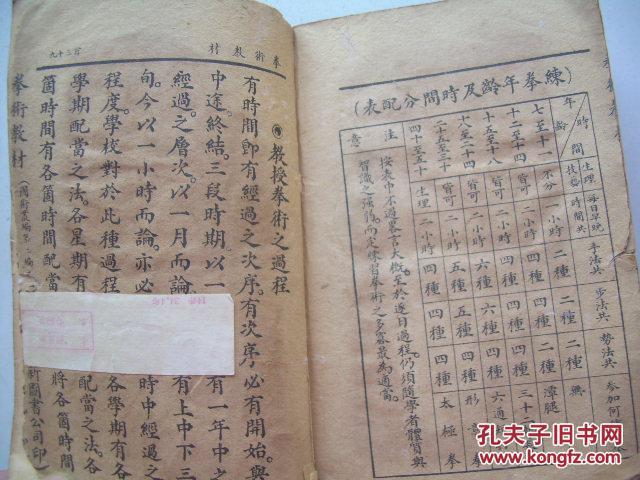 練拳年齡及時間分配表
年齡 時間
生理 技藝
每日早晚時間共
手法共
步法共
勢法共
參加何
七至十一 不分 一小時 二種 二種 二種 無
十二至十四 皆可 一小時 四種 四種 四種 潭腿
十五至十八 皆可 二小時 六種 六種 四種
十八至二十四 皆可 二小時 五種 五種 四種 六通
二小時 四種 四種 四種 形意
四十至五十 生理 二小時 四種 四種 四種 太極拳
注意
按表中不過畧言大概。至於逐日過程。仍須隨學者體質與
智識之強弱。而定練習拳術之多寡。最為適當。
拳術教材
百三十九
◎教授拳術之過程
有時間卽有經過之次序。有次序必有開始。與
中途。終結。三段時期。以一
有一年中之
經過之層次。以一月而論
有上中下三
旬。今以一小時而論。亦必
時中經過之
程度。學校對於此種過程
各學期有各
學期配當之法。各星期有
配當之法。各
箇時間有各箇時間配當
將各箇時間
拳術教材
圖書公司印
孔夫子旧书网
www.kongfz.com